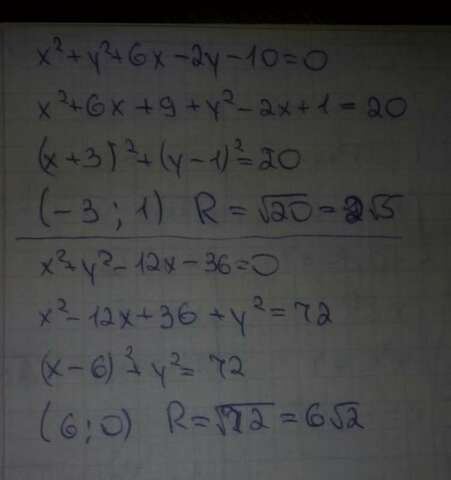 x²+y²+6x-2y-10=0
x²+6x+9+y²-2x+1=20
(x+3)²+(y-1)²=20
(-3;1) R=√20=2√5
x²+y²-12x-36=0
x²-12x+36+y²=72
(x-6)²+y²=72
(6;0) R=√72=6√2